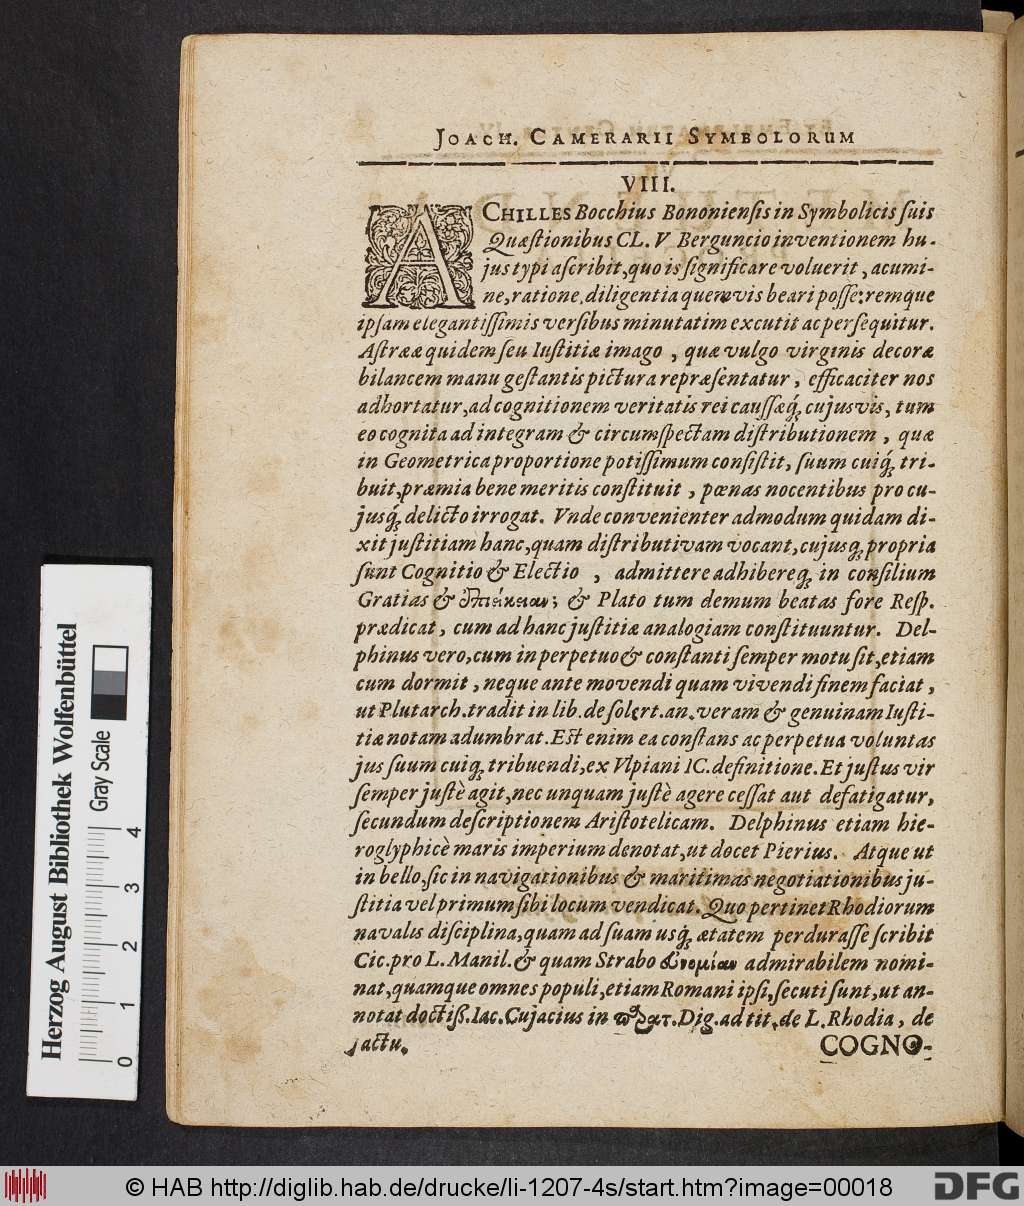 JOACH. CAMERARII SYMBOLORUM
VIII.
ACHILLES Bocchius Bononiensis in Symbolicis suis
Quæstionibus CL. V Berguncio inventionem hu-
jus typi ascribit, quo is significare voluerit, acumi-
ne, ratione, diligentia quemvis beari posse: remque
ipsam elegantissimis versibus minutatim excutit ac persequitur.
Astrææ quidem seu Iustitiæ imago, quæ vulgo virginis decoræ
bilancem manu gestantis pictura repræsentatur, efficaciter nos
adhortatur, ad cognitionem veritatis rei caussæq́; cujusvis, tum
eo cognita ad integram & circumspectam distributionem, quæ
in Geometrica proportione potissimum consistit, suum cuiq́; tri-
buit, præmia bene meritis constituit, pœnas nocentibus pro cu-
jusq́; delicto irrogat. Vnde convenienter admodum quidam di-
xit justitiam hanc, quam distributivam vocant, cujusq; propria
sunt Cognitio & Electio, admittere adhibereq; in consilium
Gratias & ἐπιείκειαν; & Plato tum demum beatas fore Resp.
prædicat, cum ad hanc justitiæ analogiam constituuntur. Del-
phinus vero, cum in perpetuo & constanti semper motu sit, etiam
cum dormit, neque ante movendi quam vivendi finem faciat,
ut Plutarch. tradit in lib. de solert. an. veram & genuinam Iusti-
tiæ notam adumbrat. Est enim ea constans ac perpetua voluntas
jus suum cuiq; tribuendi, ex Vlpiani IC. definitione. Et justus vir
semper justè agit, nec unquam justè agere cessat aut defatigatur,
secundum descriptionem Aristotelicam. Delphinus etiam hie-
roglyphicè maris imperium denotat, ut docet Pierius. Atque ut
in bello, sic in navigationibus & maritimas negotiationibus ju-
stitia vel primum sibi locum vendicat. Quo pertinet Rhodiorum
navalis disciplina, quam ad suam usq́; ætatem perdurasse scribit
Cic. pro L. Manil. & quam Strabo εὐνομίαν admirabilem nomi-
nat, quamque omnes populi, etiam Romani ipsi, secuti sunt, ut an-
notat doctiß. Iac. Cujacius in παρατ. Dig. ad tit. de L. Rhodia, de
jactu.
COGNO-
Herzog August Bibliothek Wolfenbüttel
Gray Scale
0 1 2 3 4
© HAB http://diglib.hab.de/drucke/li-1207-4s/start.htm?image=00018
DFG